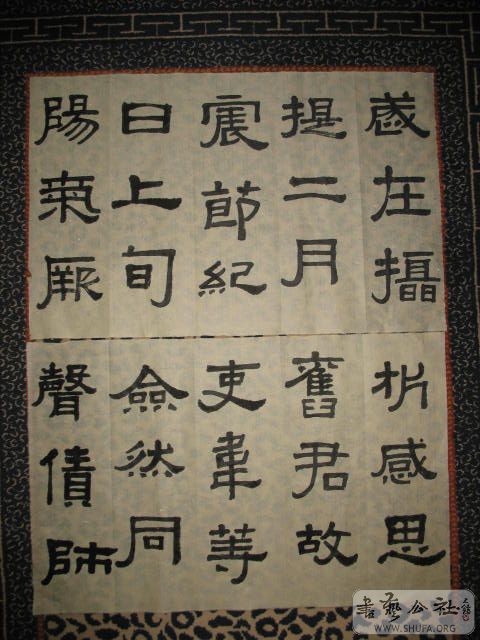 歲在攝
提二月
震節紀
日上旬
陽氣厥
析感思
舊君故
吏韋等
僉然同
聲債師
书艺公社
WWW.SHUFA.ORG